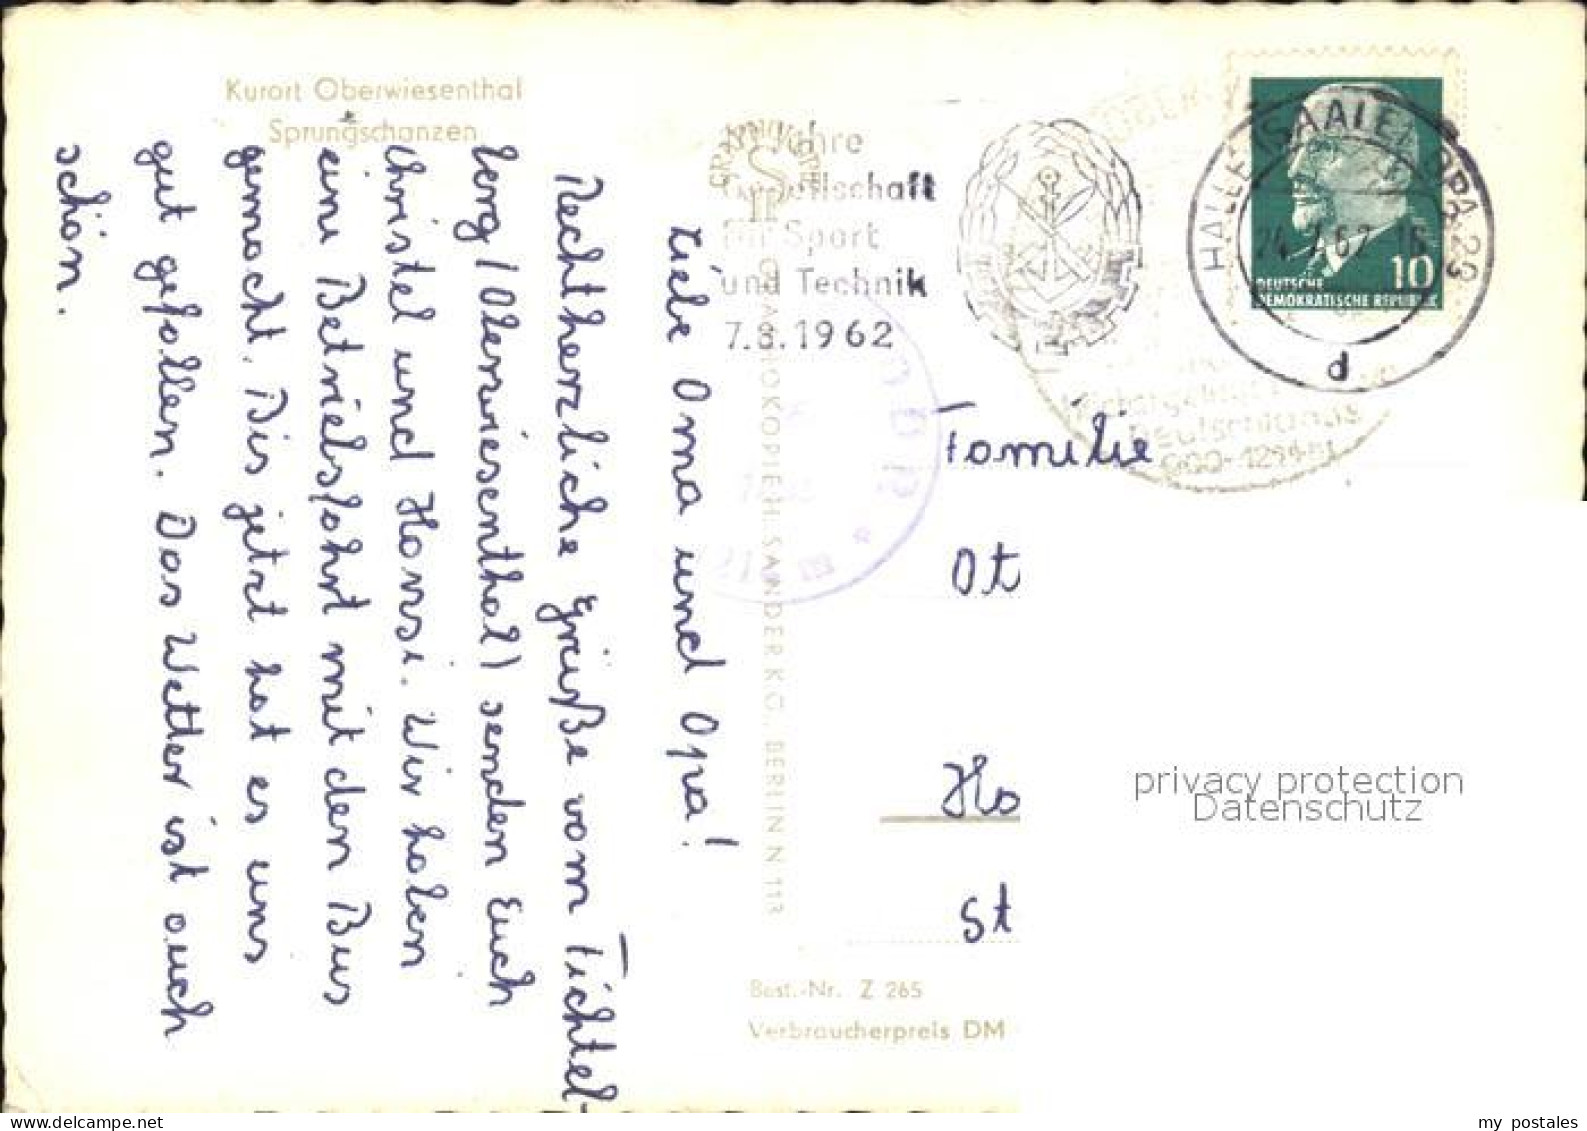 Kurort Oberwiesenthal
Sprungschanzen
Liebe Oma und Opa!
Rechtherzliche Grüße vom Fichtel-
berg (Oberwiesenthal) senden Euch
Christel und Hansi. Wir haben
eine Betriebsfahrt mit dem Bus
gemacht. Bis jetzt hat es uns
gut gefallen. Das Wetter ist auch
schön.
Jahre
Gesellschaft
für Sport
und Technik
7.8.1962
HALLE (SAALE)
d
DEUTSCHE
DEMOKRATISCHE REPUBLIK
10
Familie
Ot
Ha
St
SANDER K.G., BERLIN N 113
Best.-Nr. Z 265
Verbraucherpreis DM
privacy protection
Datenschutz
my postales